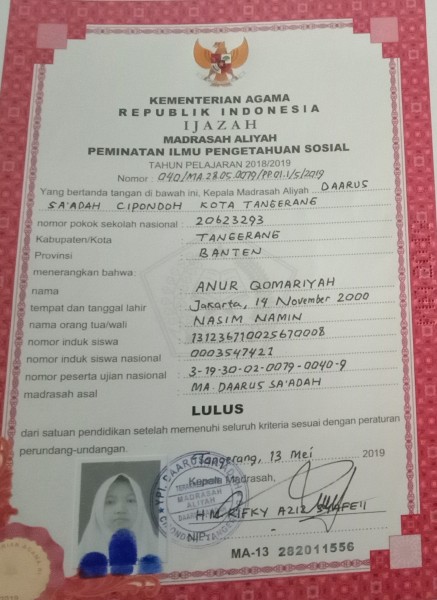 KEMENTERIAN AGAMA
REPUBLIK INDONESIA
IJAZAH
MADRASAH ALIYAH
PEMINATAN ILMU PENGETAHUAN SOSIAL
TAHUN PELAJARAN 2018/2019
Nomor : 040/MA.28.05.0079/PP.01.1/5/2019
Yang bertanda tangan di bawah ini, Kepala Madrasah Aliyah DAARUS
SA'ADAH CIPONDOH KOTA TANGERANG
nomor pokok sekolah nasional : 20623293
Kabupaten/Kota : TANGERANG
Provinsi : BANTEN
menerangkan bahwa:
nama : ANUR QOMARIYAH
tempat dan tanggal lahir : Jakarta, 14 November 2000
nama orang tua/wali : NASIM NAMIN
nomor induk siswa : 131236710025670008
nomor induk siswa nasional : 0003547421
nomor peserta ujian nasional : 3-19-30-02-0079-0040-9
madrasah asal : MA. DAARUS SA'ADAH
LULUS
dari satuan pendidikan setelah memenuhi seluruh kriteria sesuai dengan peraturan
perundang-undangan.
Tangerang, 13 Mei 2019
Kepala Madrasah,
MADRASAH
ALIYAH
H M RIFKY AZIZ SYAFEII
NIP.
MA-13 282011556